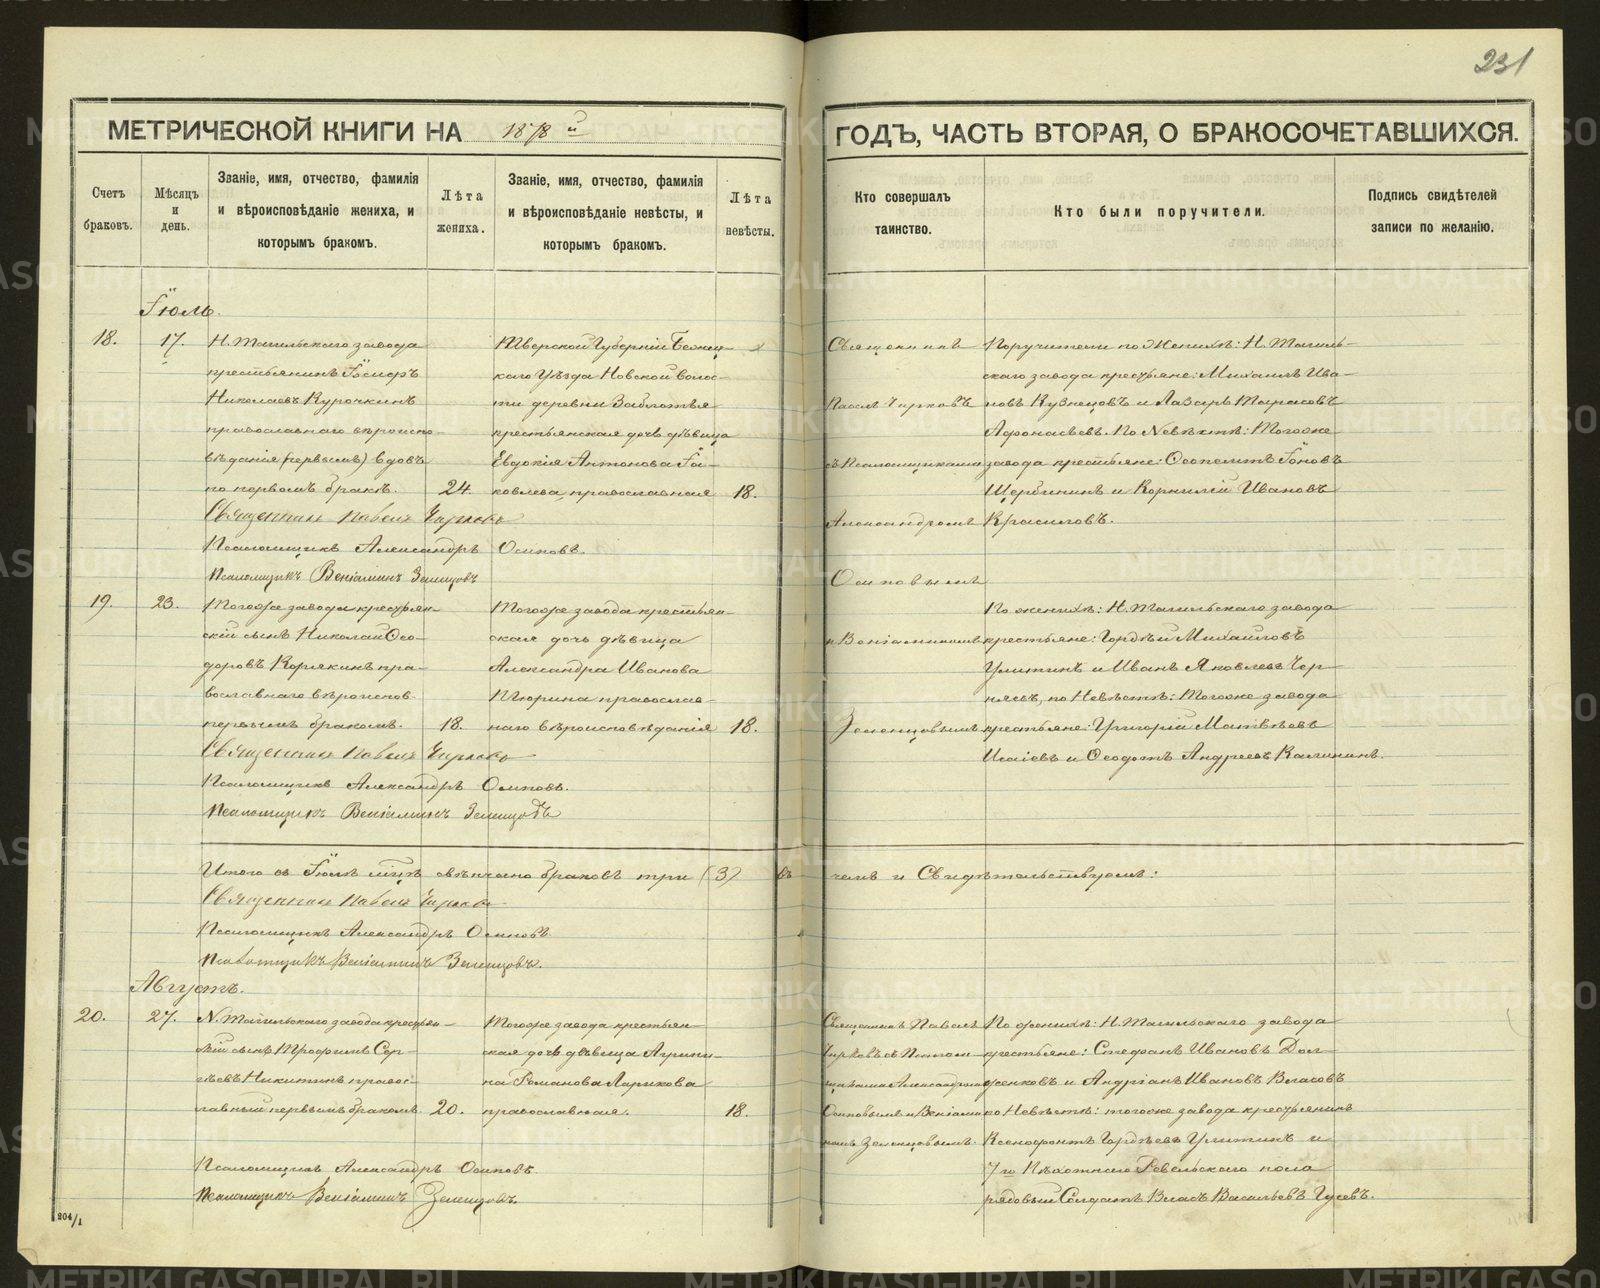 231
МЕТРИЧЕСКОЙ КНИГИ НА 1878 й
ГОДЪ, ЧАСТЬ ВТОРАЯ, О БРАКОСОЧЕТАВШИХСЯ.
Счетъ браковъ.
Мѣсяцъ и день.
Званіе, имя, отчество, фамилія
и вѣроисповѣданіе жениха, и
которымъ бракомъ.
Лѣта
жениха.
Званіе, имя, отчество, фамилія
и вѣроисповѣданіе невѣсты, и
которымъ бракомъ.
Лѣта
невѣсты.
Кто совершалъ
таинство.
Кто были поручители.
Подпись свидѣтелей
записи по желанію.
Іюль.
18.
17.
Н. Тагильскаго завода
крестьянинъ Іосифъ
Николаевъ Курочкинъ
православнаго вѣроиспо
вѣданія (первымъ) вдовъ
по первомъ бракѣ.
24.
Тверской Губерніи Бежец-
каго Уѣзда Новской волос-
ти деревни Заблотья
крестьянская дочь дѣвица
Евдокія Антонова Іа-
ковлева, православная
18.
Священникъ
Павелъ Чирковъ
съ Псаломщиками
Александромъ
Осиповымъ
и Веніаминомъ
Зеленцовымъ
Поручители по Женихѣ: Н. Тагиль-
скаго завода крестьяне: Михаилъ Ива-
новъ Кузнецовъ и Лазарь Тарасовъ
Афонасьевъ. По Невѣстѣ: Тогоже
завода крестьяне: Ѳеопемптъ Іоновъ
Щербининъ и Корнилій Ивановъ
Красиловъ.
Священникъ Павелъ Чирковъ
Псаломщикъ Александръ Осиповъ.
Псаломщикъ Веніаминъ Зеленцовъ
19.
23.
Тогоже завода крестьян-
скій сынъ Николай Ѳео-
доровъ Корякинъ пра-
вославнаго вѣроиспов.
первымъ бракомъ.
18.
Тогоже завода крестьян-
ская дочь дѣвица
Александра Иванова
Тюрина православ-
наго вѣроисповѣданія
18.
По женихѣ: Н. Тагильскаго завода
крестьяне: Гордѣй Михайловъ
Улитинъ и Иванъ Яковлевъ Чер-
няевъ, по Невѣстѣ: Тогоже завода
крестьяне: Григорій Матвѣевъ
Исаіевъ и Ѳеодотъ Андреевъ Калининъ.
Священникъ Павелъ Чирковъ
Псаломщикъ Александръ Осиповъ.
Псаломщикъ Веніаминъ Зеленцовъ
Итого въ Іюлѣ мѣцѣ свѣнчано браковъ три (3) въ чемъ и Свидѣтельствуемъ:
Священникъ Павелъ Чирковъ
Псаломщикъ Александръ Осиповъ
Псаломщикъ Веніаминъ Зеленцовъ.
Августъ.
20.
27.
Н. Тагильскаго завода крестьян-
скій сынъ Трофимъ Сер-
гѣевъ Никитинъ правос-
лавный первымъ бракомъ
20.
Тогоже завода крестьян
ская дочь дѣвица Агрипи-
на Романова Ларикова
православная.
18.
Священникъ Павелъ
Чирковъ съ Псалом-
щиками Александромъ
Осиповымъ и Веніами-
номъ Зеленцовымъ.
По женихѣ: Н. Тагильскаго завода
крестьяне: Стефанъ Ивановъ Дол-
женковъ и Андріанъ Ивановъ Власовъ
по Невѣстѣ: тогоже завода крестьянинъ
Ксенофонтъ Гордѣевъ Улитинъ и
7го Пѣхотнаго Ревельскаго полка
рядовый Солдатъ Власъ Васильевъ Гусевъ.
Псаломщикъ Александръ Осиповъ
Псаломщикъ Веніаминъ Зеленцовъ.
204/1
METRIKI.GASO-URAL.RU